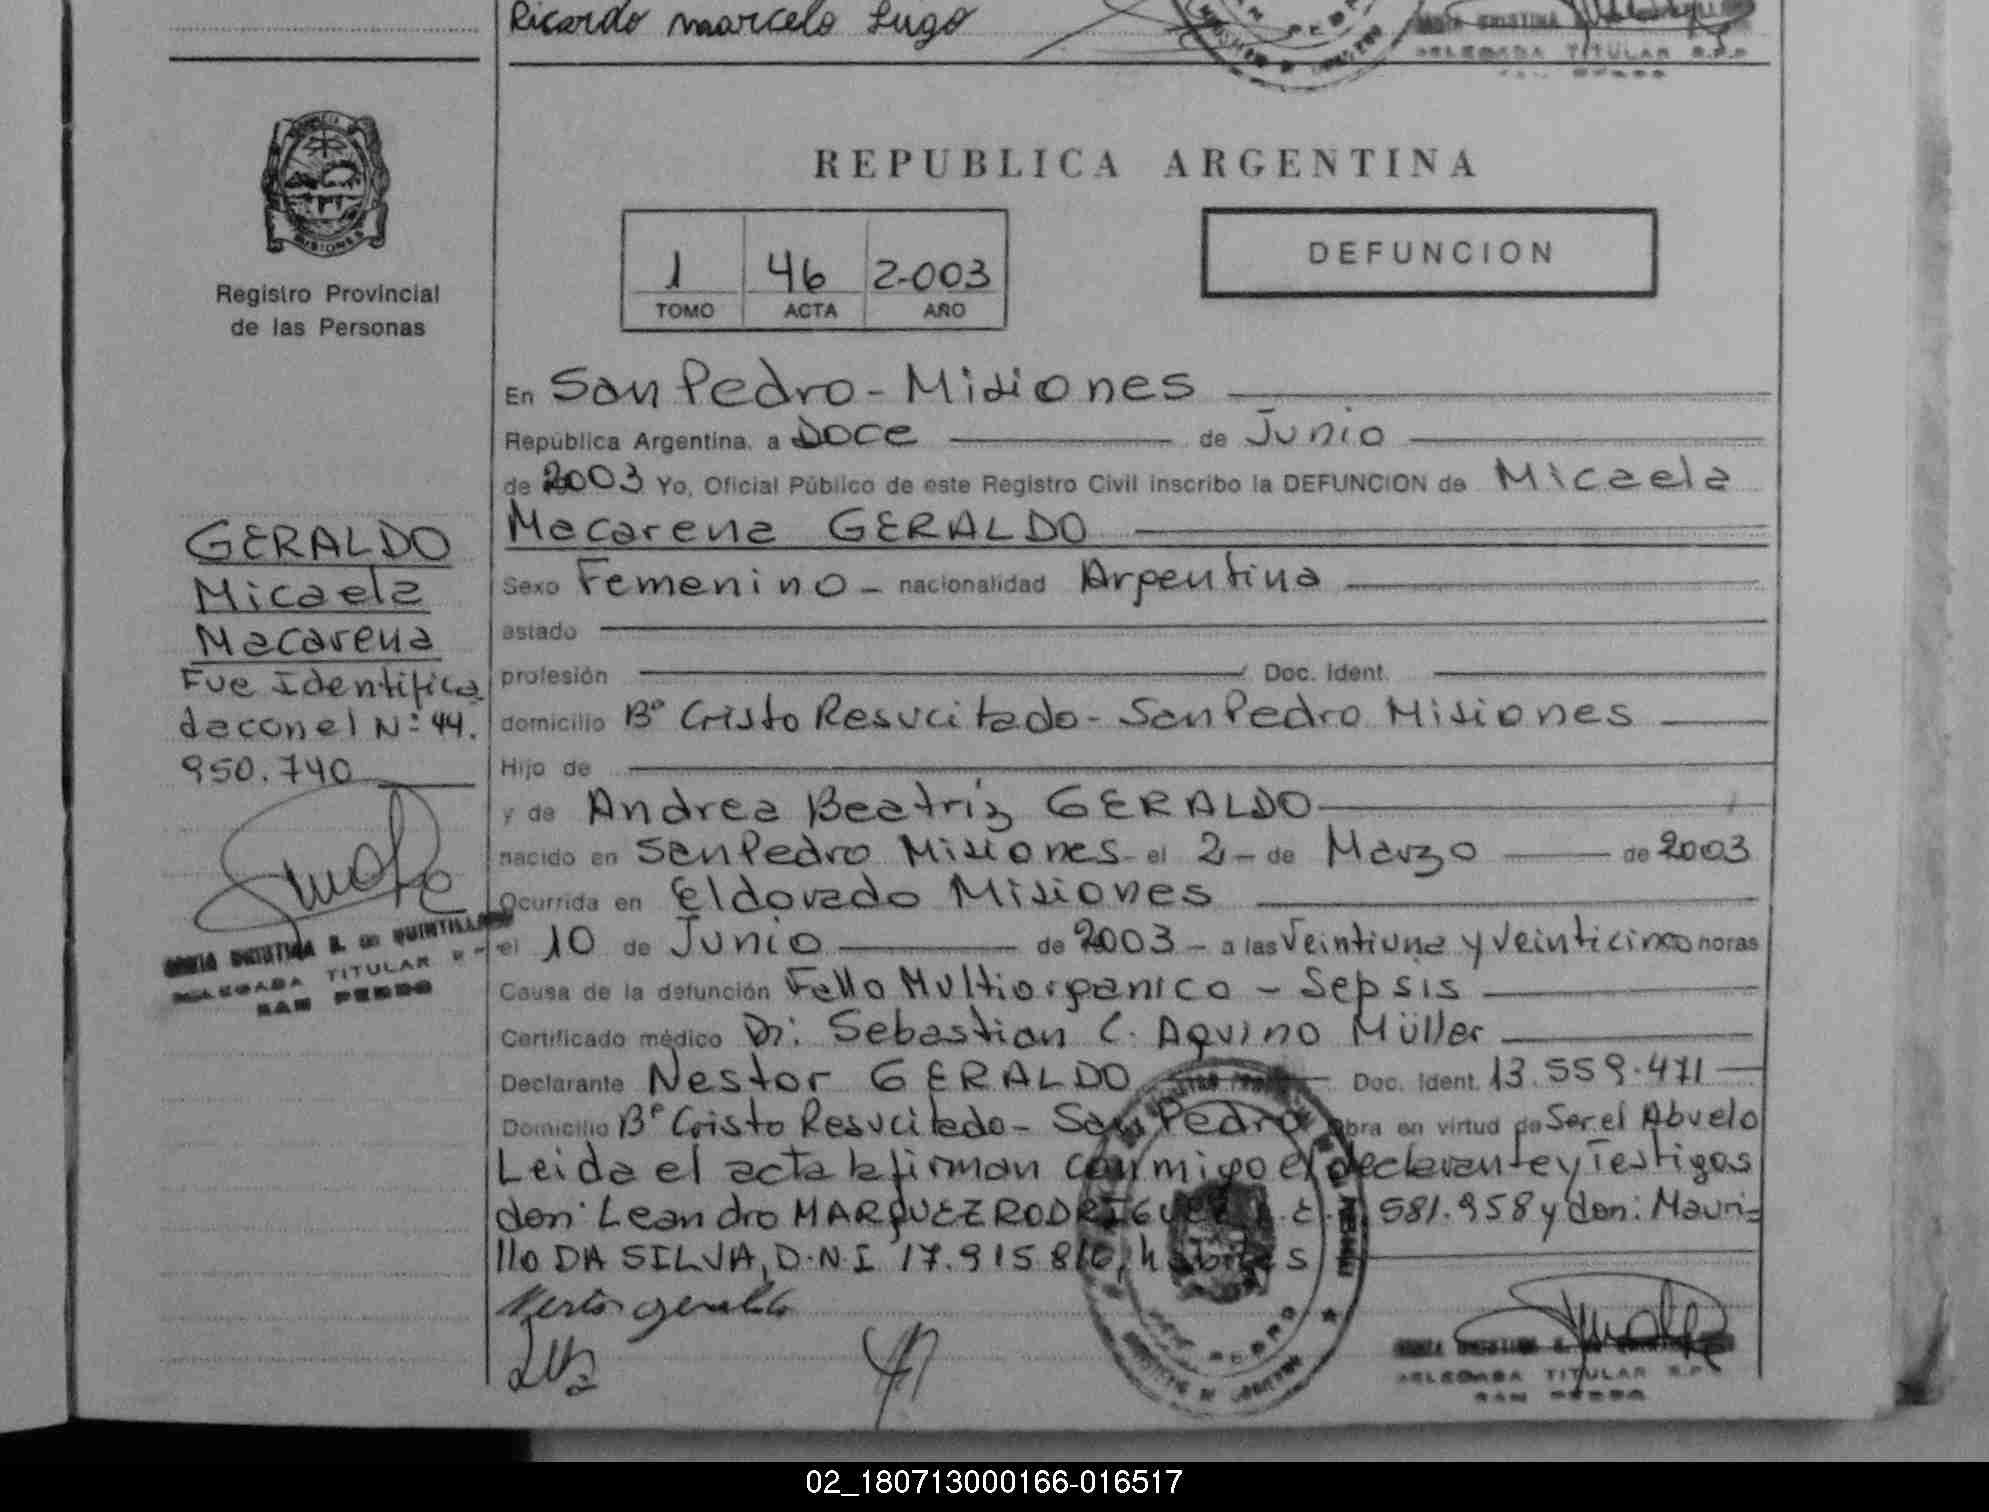 Ricardo Marcelo Lugo
DELEGADA TITULAR R.P.P
SAN PEDRO
MISIONES
Registro Provincial
de las Personas
REPUBLICA ARGENTINA
1 46 2.003
TOMO ACTA AÑO
DEFUNCION
En San Pedro - Misiones
República Argentina, a Doce de Junio
de 2003 Yo, Oficial Público de este Registro Civil inscribo la DEFUNCION de Micaela
Macarena GERALDO
Sexo Femenino - nacionalidad Argentina
estado
profesión Doc. Ident.
domicilio Bº Cristo Resucitado - San Pedro Misiones
Hijo de
y de Andrea Beatriz GERALDO
nacido en San Pedro Misiones - el 2 - de Marzo de 2003
Ocurrida en Eldorado Misiones
el 10 de Junio de 2003 - a las Veintiuna y veinticinco horas
Causa de la defunción Fallo Multiorganico - Sepsis
Certificado médico Dr: Sebastian C. Aquino Müller
Declarante Nestor GERALDO Doc. Ident. 13.559.471
Domicilio Bº Cristo Resucitado - San Pedro Obra en virtud de Ser el Abuelo
Leida el acta la firman conmigo el declarante y Testigos
don: Leandro MARQUEZ RODRIGUEZ 581.958 y don: Mauri=
llo DA SILVA, D.N.I 17.915.810, habiles
Nestor Geraldo
DELEGADA TITULAR R.P.P
SAN PEDRO
GERALDO
Micaela
Macarena
Fue Identifica
da con el Nº 44.
950.740
MARIA CRISTINA R. de QUINTILLAN
DELEGADA TITULAR
SAN PEDRO
02_180713000166-016517